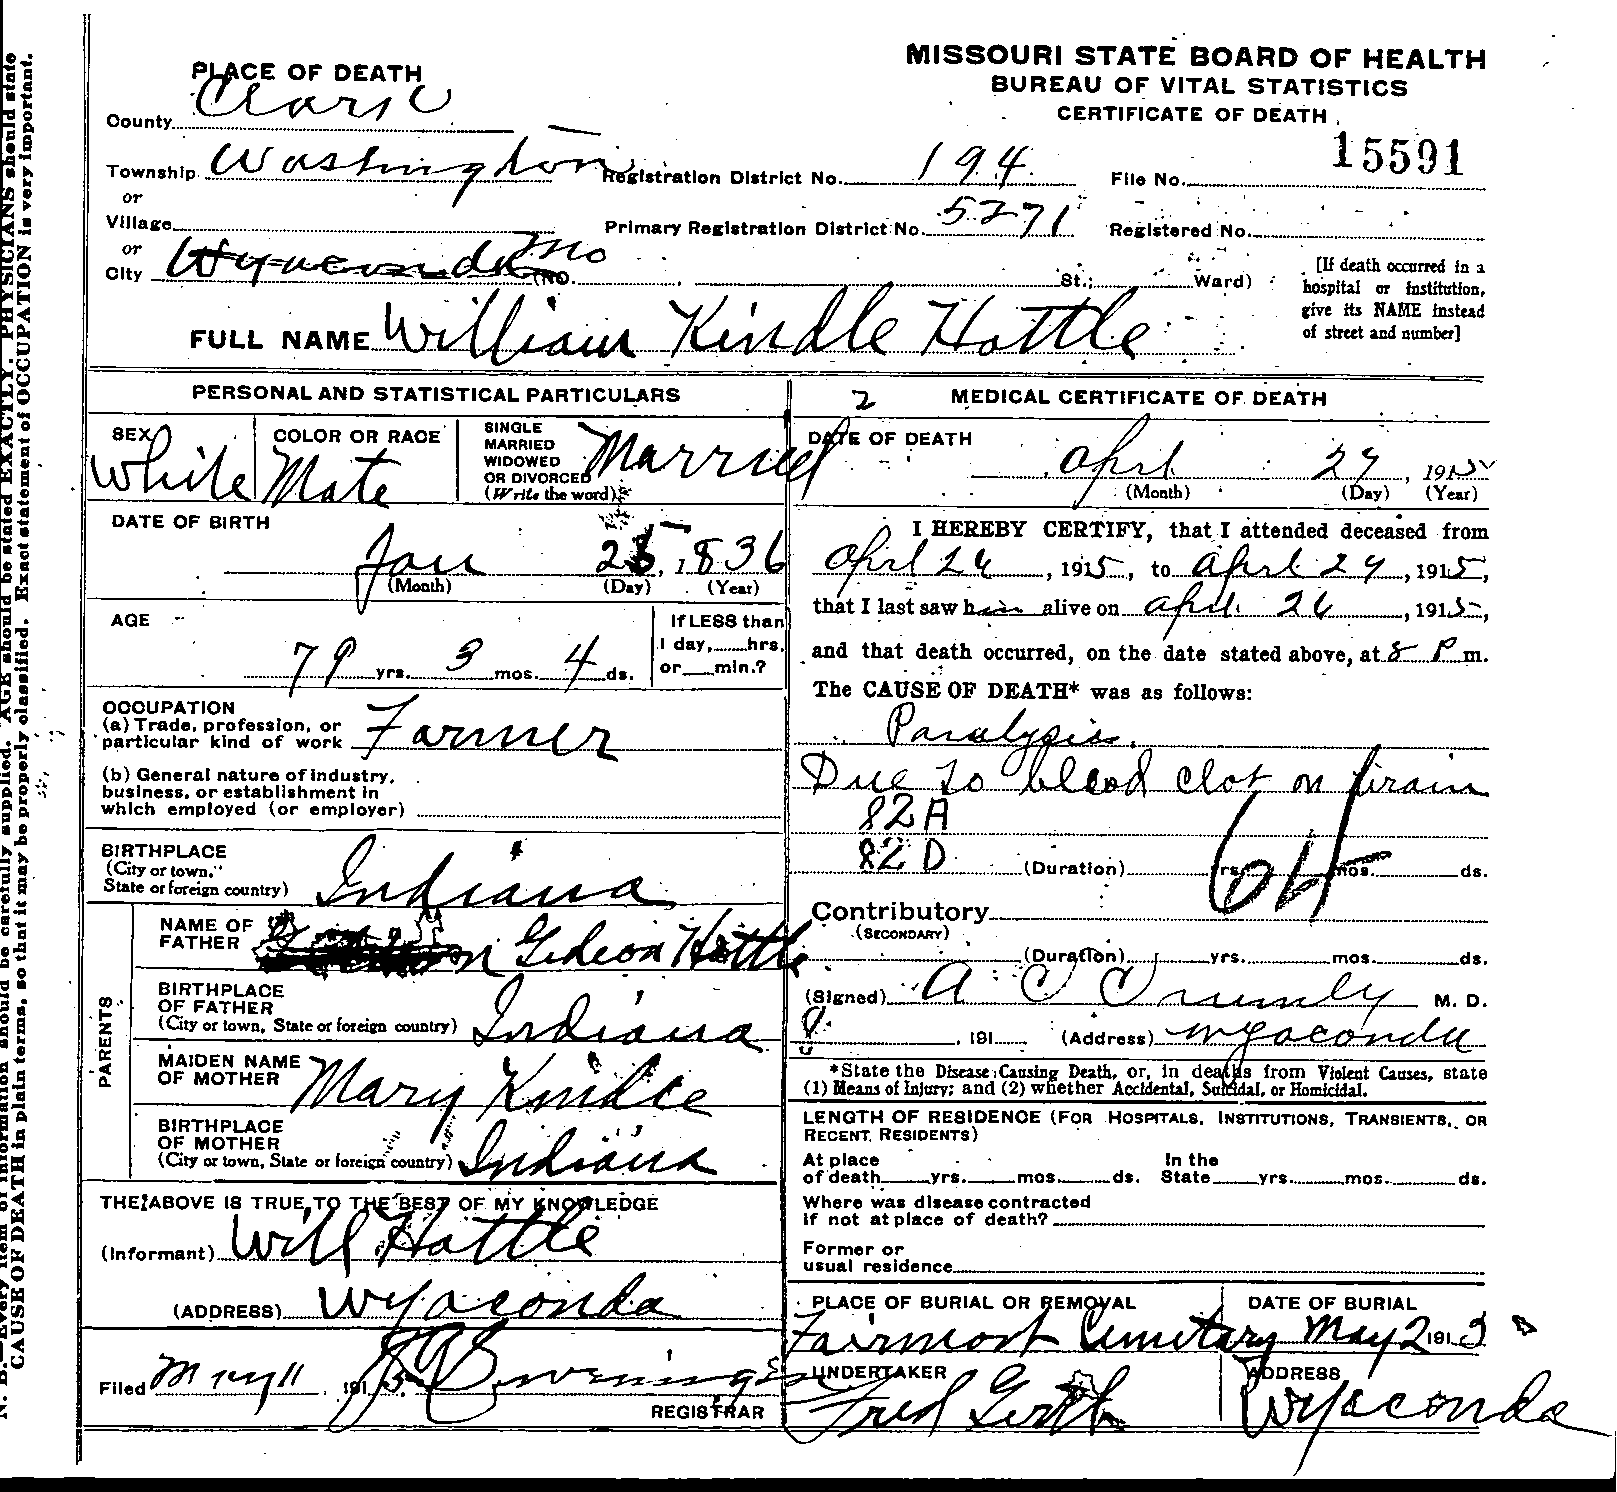 MISSOURI STATE BOARD OF HEALTH
BUREAU OF VITAL STATISTICS
CERTIFICATE OF DEATH
PLACE OF DEATH
County Clark
Township Washington Registration District No. 194 File No. 15591
or
Village Primary Registration District No. 5271 Registered No.
or
City Wyaconda Mo (NO. St.; Ward)
[If death occurred in a
hospital or institution,
give its NAME instead
of street and number]
FULL NAME William Kindle Hottle
PERSONAL AND STATISTICAL PARTICULARS
SEX
White
COLOR OR RACE
Male
SINGLE
MARRIED
WIDOWED
OR DIVORCED
(Write the word)
Married
DATE OF BIRTH
Jan 25, 1836
(Month) (Day) (Year)
AGE
79 yrs. 3 mos. 4 ds.
If LESS than
1 day, hrs.
or min.?
OCCUPATION
(a) Trade, profession, or
particular kind of work Farmer
(b) General nature of industry,
business, or establishment in
which employed (or employer)
BIRTHPLACE
(City or town,
State or foreign country) Indiana
PARENTS
NAME OF
FATHER Gideon Hottle
BIRTHPLACE
OF FATHER
(City or town, State or foreign country) Indiana
MAIDEN NAME
OF MOTHER Mary Kindle
BIRTHPLACE
OF MOTHER
(City or town, State or foreign country) Indiana
THE ABOVE IS TRUE TO THE BEST OF MY KNOWLEDGE
(Informant) Will Hottle
(ADDRESS) Wyaconda
Filed May 11 1915
REGISTRAR
2 MEDICAL CERTIFICATE OF DEATH
DATE OF DEATH
April 29, 1915
(Month) (Day) (Year)
I HEREBY CERTIFY, that I attended deceased from
April 26, 1915, to April 29, 1915,
that I last saw him alive on April 26, 1915,
and that death occurred, on the date stated above, at 8 P m.
The CAUSE OF DEATH* was as follows:
Paralysis.
Due to blood clot on brain
82A
82D (Duration) yrs. mos. ds.
64
Contributory
(SECONDARY)
(Duration) yrs. mos. ds.
(Signed) A C M. D.
, 191 (Address) Wyaconda
*State the Disease Causing Death, or, in deaths from Violent Causes, state
(1) Means of Injury; and (2) whether Accidental, Suicidal, or Homicidal.
LENGTH OF RESIDENCE (FOR HOSPITALS, INSTITUTIONS, TRANSIENTS, OR
RECENT RESIDENTS)
At place In the
of death yrs. mos. ds. State yrs. mos. ds.
Where was disease contracted
if not at place of death?
Former or
usual residence
PLACE OF BURIAL OR REMOVAL
Fairmont Cemetary
DATE OF BURIAL
May 2 191
UNDERTAKER
Fred Gerth
ADDRESS
Wyaconda
N. B.—Every item of information should be carefully supplied. AGE should be stated EXACTLY. PHYSICIANS should state
CAUSE OF DEATH in plain terms, so that it may be properly classified. Exact statement of OCCUPATION is very important.